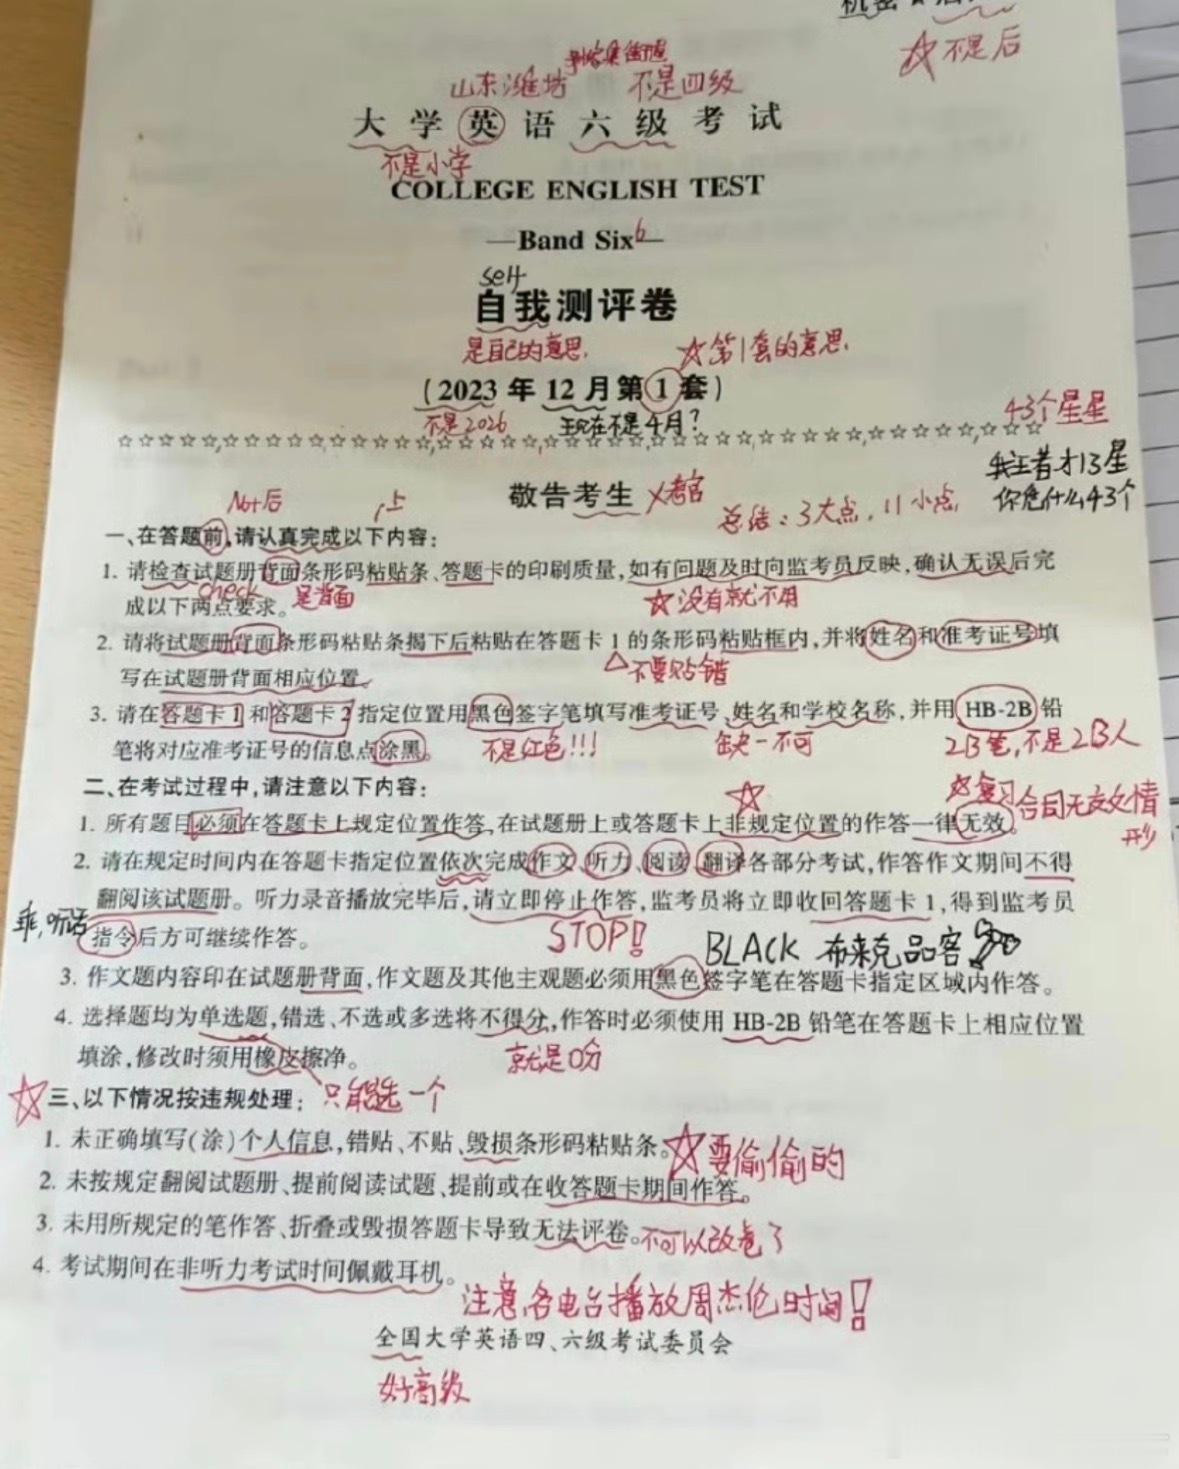 机密
☆不是后
山东潍坊 不是四级
大学英语六级考试
不是小学
COLLEGE ENGLISH TEST
—Band Six—
6
self
自我测评卷
是自己的意思. ☆第1套的意思.
(2023年12月第1套)
不是2026 现在不是4月?
43个星星
☆☆☆☆☆☆☆☆☆☆☆☆☆☆☆☆☆☆☆☆☆☆☆☆☆☆☆☆☆☆☆☆☆☆☆☆☆☆☆☆☆☆☆
我王者才13星
你凭什么43个
敬告考生 X考官
总结:3大点,11小点
Not后 上
一、在答题前,请认真完成以下内容:
1. 请检查试题册背面条形码粘贴条、答题卡的印刷质量,如有问题及时向监考员反映,确认无误后完
check 是背面 ☆没有就不用
成以下两点要求。
2. 请将试题册背面条形码粘贴条揭下后粘贴在答题卡1的条形码粘贴框内,并将姓名和准考证号填
△不要贴错
写在试题册背面相应位置。
3. 请在答题卡1和答题卡2指定位置用黑色签字笔填写准考证号、姓名和学校名称,并用HB-2B铅
笔将对应准考证号的信息点涂黑。
不是红色!!! 缺一不可 2B笔,不是2B人
二、在考试过程中,请注意以下内容:
☆ ☆复习合同无效情形
1. 所有题目必须在答题卡上规定位置作答,在试题册上或答题卡上非规定位置的作答一律无效。
2. 请在规定时间内在答题卡指定位置依次完成作文、听力、阅读、翻译各部分考试,作答作文期间不得
翻阅该试题册。听力录音播放完毕后,请立即停止作答,监考员将立即收回答题卡1,得到监考员
乖,听话
指令后方可继续作答。
STOP! BLACK 布来克品客
3. 作文题内容印在试题册背面,作文题及其他主观题必须用黑色签字笔在答题卡指定区域内作答。
4. 选择题均为单选题,错选、不选或多选将不得分,作答时必须使用HB-2B铅笔在答题卡上相应位置
填涂,修改时须用橡皮擦净。
就是0分
☆三、以下情况按违规处理:
只能选一个
1. 未正确填写(涂)个人信息,错贴、不贴、毁损条形码粘贴条。
☆要偷偷的
2. 未按规定翻阅试题册、提前阅读试题、提前或在收答题卡期间作答。
3. 未用所规定的笔作答、折叠或毁损答题卡导致无法评卷。
不可以改卷了
4. 考试期间在非听力考试时间佩戴耳机。
注意,各电台播放周杰伦时间!
全国大学英语四、六级考试委员会
好高级